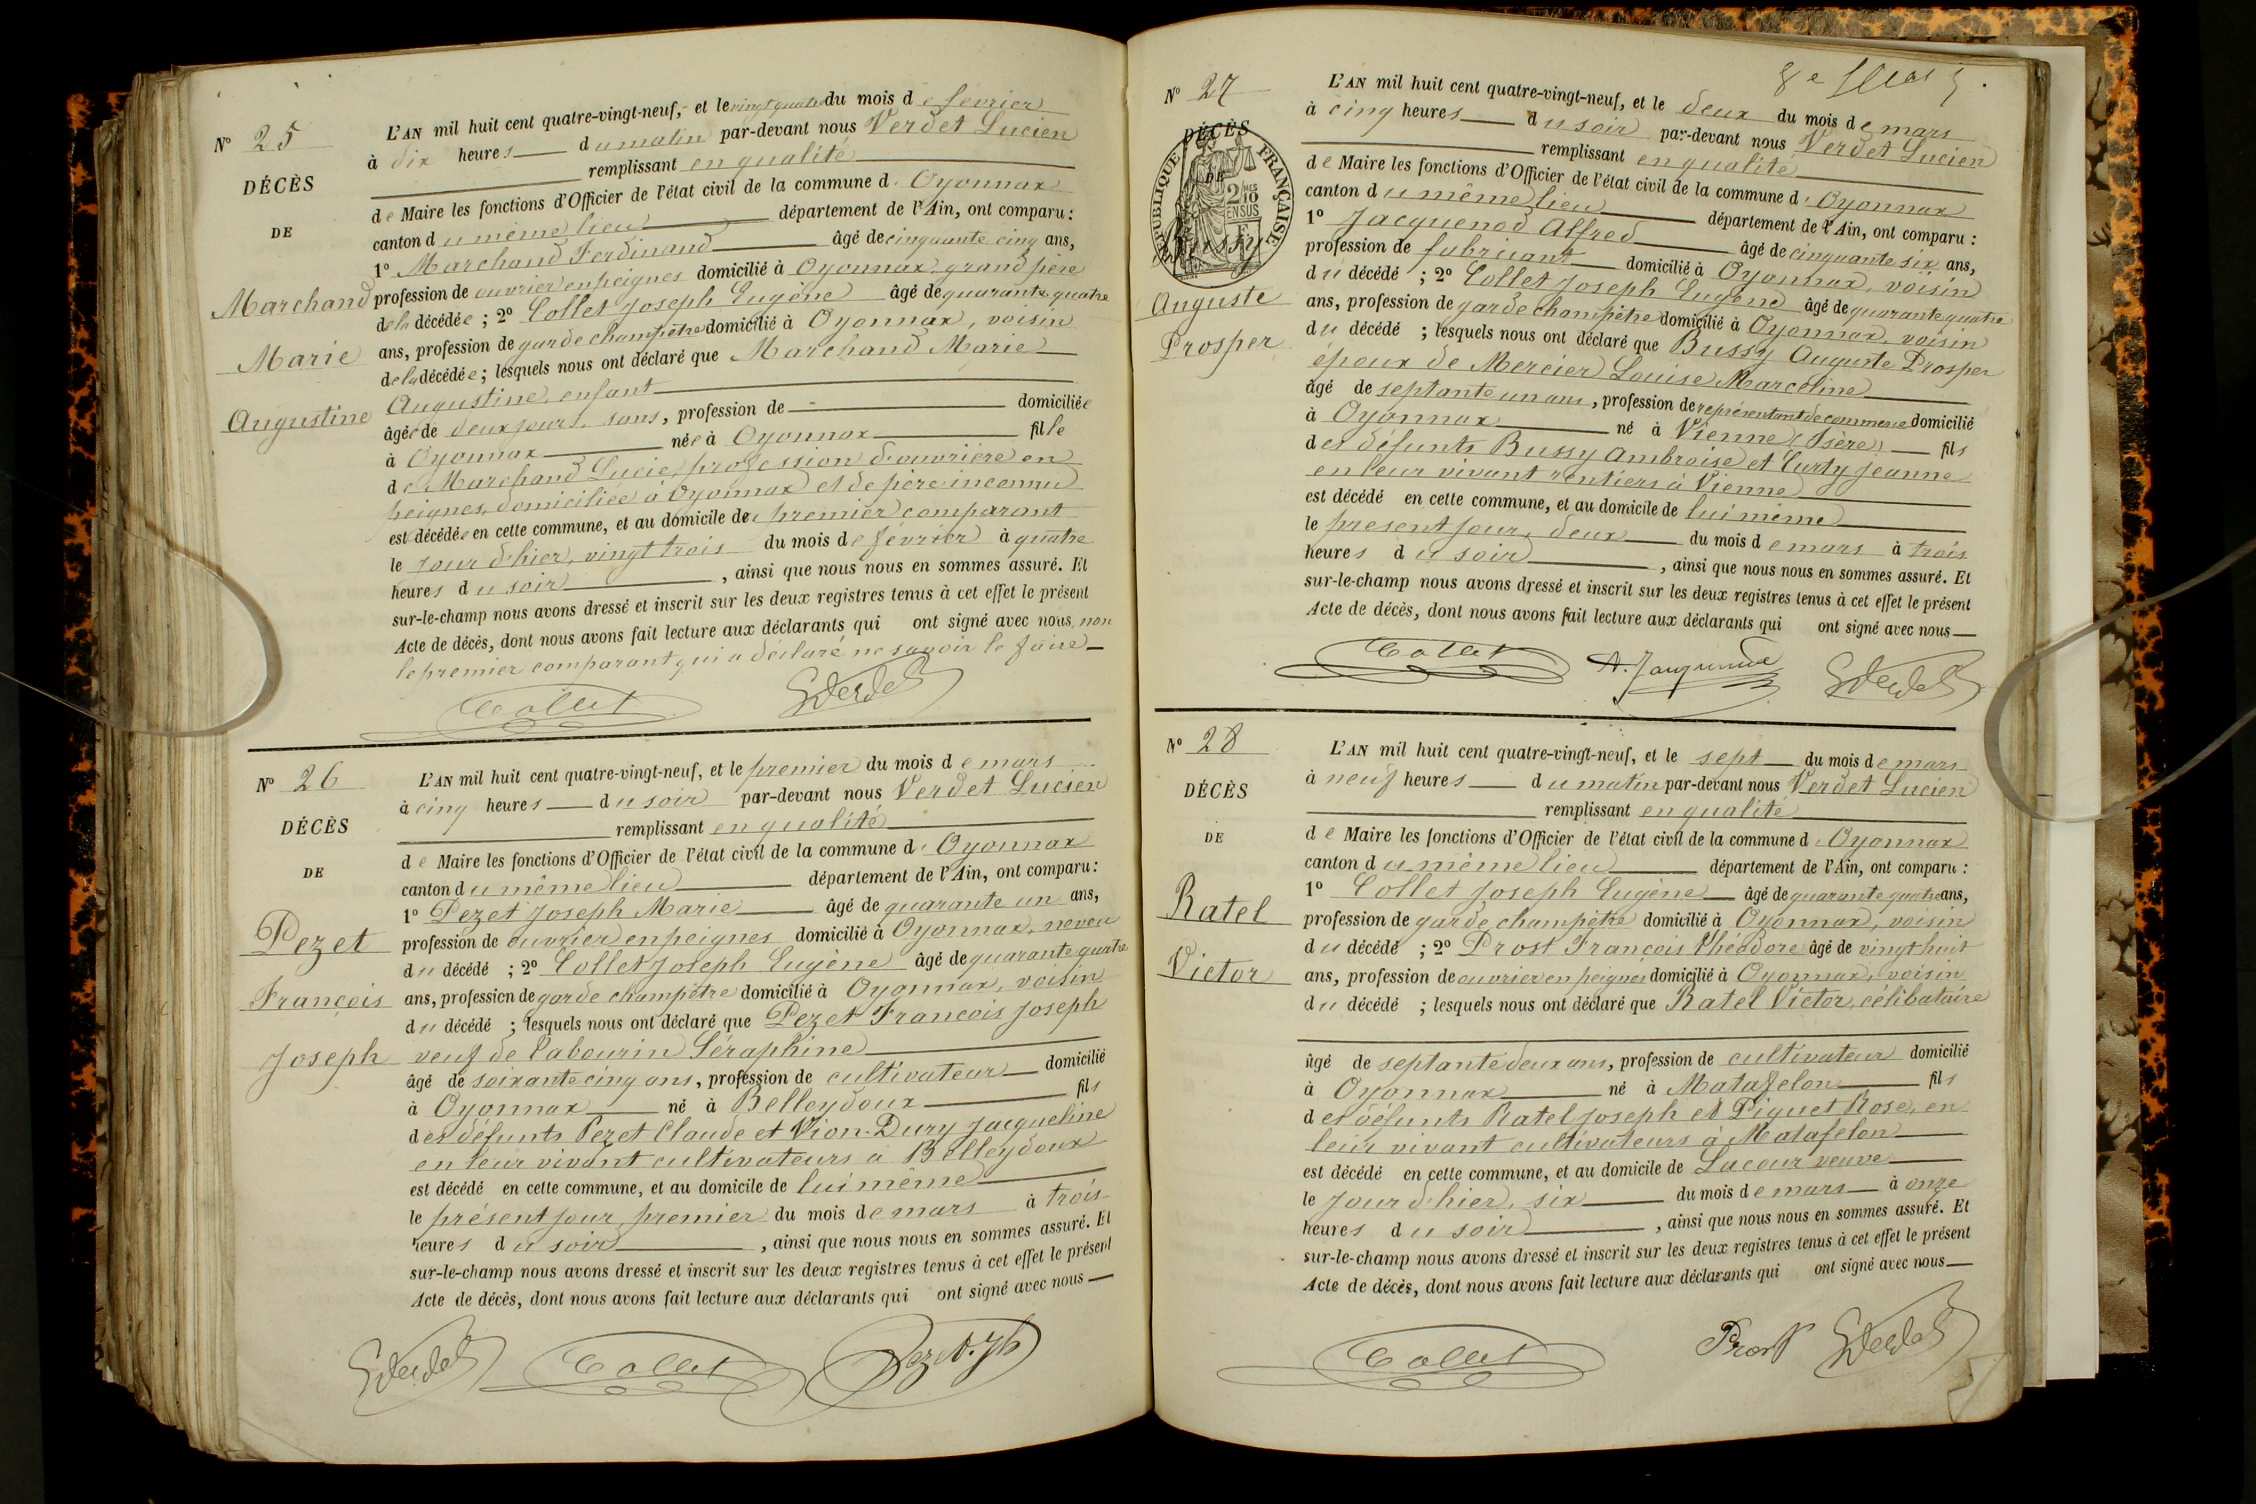 N° 25
DÉCÈS
DE
Marchand
Marie
Augustine
L'AN mil huit cent quatre-vingt-neuf, et le vingt quatre du mois de février
à dix heures du matin par-devant nous Verdet Lucien
remplissant en qualité
de Maire les fonctions d'Officier de l'état civil de la commune d'Oyonnax
canton du même lieu département de l'Ain, ont comparu :
1° Marchand Ferdinand âgé de cinquante cinq ans,
profession de ouvrier en peignes domicilié à Oyonnax, grand père
de la décédée ; 2° Collet Joseph Eugène âgé de quarante quatre
ans, profession de garde champêtre domicilié à Oyonnax, voisin
de la décédée ; lesquels nous ont déclaré que Marchand Marie
Augustine, enfant
âgée de deux jours, sans, profession de - domiciliée
à Oyonnax née à Oyonnax fille
de Marchand Lucie, profession d'ouvrière en
peignes, domiciliée à Oyonnax et de père inconnu
est décédée en cette commune, et au domicile du premier comparant
le jour d'hier, vingt trois du mois de février à quatre
heures du soir, ainsi que nous nous en sommes assuré. Et
sur-le-champ nous avons dressé et inscrit sur les deux registres tenus à cet effet le présent
Acte de décès, dont nous avons fait lecture aux déclarants qui ont signé avec nous, non
le premier comparant, qui a déclaré ne savoir le faire
Collet Verdet
N° 26
DÉCÈS
DE
Pezet
François
Joseph
L'AN mil huit cent quatre-vingt-neuf, et le premier du mois de mars
à cinq heures du soir par-devant nous Verdet Lucien
remplissant en qualité
de Maire les fonctions d'Officier de l'état civil de la commune d'Oyonnax
canton du même lieu département de l'Ain, ont comparu :
1° Pezet Joseph Marie âgé de quarante un ans,
profession de ouvrier en peignes domicilié à Oyonnax, neveu
du décédé ; 2° Collet Joseph Eugène âgé de quarante quatre
ans, profession de garde champêtre domicilié à Oyonnax, voisin
du décédé ; lesquels nous ont déclaré que Pezet François Joseph
veuf de Cabourin Séraphine
âgé de soixante cinq ans, profession de cultivateur domicilié
à Oyonnax né à Belleydoux fils
des défunts Pezet Claude et Vion-Dury Jacqueline
en leur vivant cultivateurs à Belleydoux
est décédé en cette commune, et au domicile de lui même
le présent jour, premier du mois de mars à trois
heures du soir, ainsi que nous nous en sommes assuré. Et
sur-le-champ nous avons dressé et inscrit sur les deux registres tenus à cet effet le présent
Acte de décès, dont nous avons fait lecture aux déclarants qui ont signé avec nous
Verdet Collet Pezet Jh
N° 27
DÉCÈS
DE
RÉPUBLIQUE FRANÇAISE
2/10 EN SUS
Bussy
Auguste
Prosper
L'AN mil huit cent quatre-vingt-neuf, et le deux du mois de mars
à cinq heures du soir par-devant nous Verdet Lucien
remplissant en qualité
de Maire les fonctions d'Officier de l'état civil de la commune d'Oyonnax
canton du même lieu département de l'Ain, ont comparu :
1° Jacquenod Alfred âgé de cinquante six ans,
profession de fabricant domicilié à Oyonnax, voisin
du décédé ; 2° Collet Joseph Eugène âgé de quarante quatre
ans, profession de garde champêtre domicilié à Oyonnax, voisin
du décédé ; lesquels nous ont déclaré que Bussy Auguste Prosper
époux de Mercier Louise Marcoline
âgé de septante un ans, profession de représentant de commerce domicilié
à Oyonnax né à Vienne (Isère) fils
des défunts Bussy Ambroise et Curty Jeanne
en leur vivant rentiers à Vienne
est décédé en cette commune, et au domicile de lui même
le présent jour, deux du mois de mars à trois
heures du soir, ainsi que nous nous en sommes assuré. Et
sur-le-champ nous avons dressé et inscrit sur les deux registres tenus à cet effet le présent
Acte de décès, dont nous avons fait lecture aux déclarants qui ont signé avec nous
Collet A. Jacquenod Verdet
N° 28
DÉCÈS
DE
Ratel
Victor
L'AN mil huit cent quatre-vingt-neuf, et le sept du mois de mars
à neuf heures du matin par-devant nous Verdet Lucien
remplissant en qualité
de Maire les fonctions d'Officier de l'état civil de la commune d'Oyonnax
canton du même lieu département de l'Ain, ont comparu :
1° Collet Joseph Eugène âgé de quarante quatre ans,
profession de garde champêtre domicilié à Oyonnax, voisin
du décédé ; 2° Prost François Théodore âgé de vingt huit
ans, profession de ouvrier en peignes domicilié à Oyonnax, voisin
du décédé ; lesquels nous ont déclaré que Ratel Victor, célibataire
âgé de septante deux ans, profession de cultivateur domicilié
à Oyonnax né à Matafelon fils
des défunts Ratel Joseph et Piquet Rose, en
leur vivant cultivateurs à Matafelon
est décédé en cette commune, et au domicile de Lacour veuve
le jour d'hier, six du mois de mars à onze
heures du soir, ainsi que nous nous en sommes assuré. Et
sur-le-champ nous avons dressé et inscrit sur les deux registres tenus à cet effet le présent
Acte de décès, dont nous avons fait lecture aux déclarants qui ont signé avec nous
Collet Prost Verdet